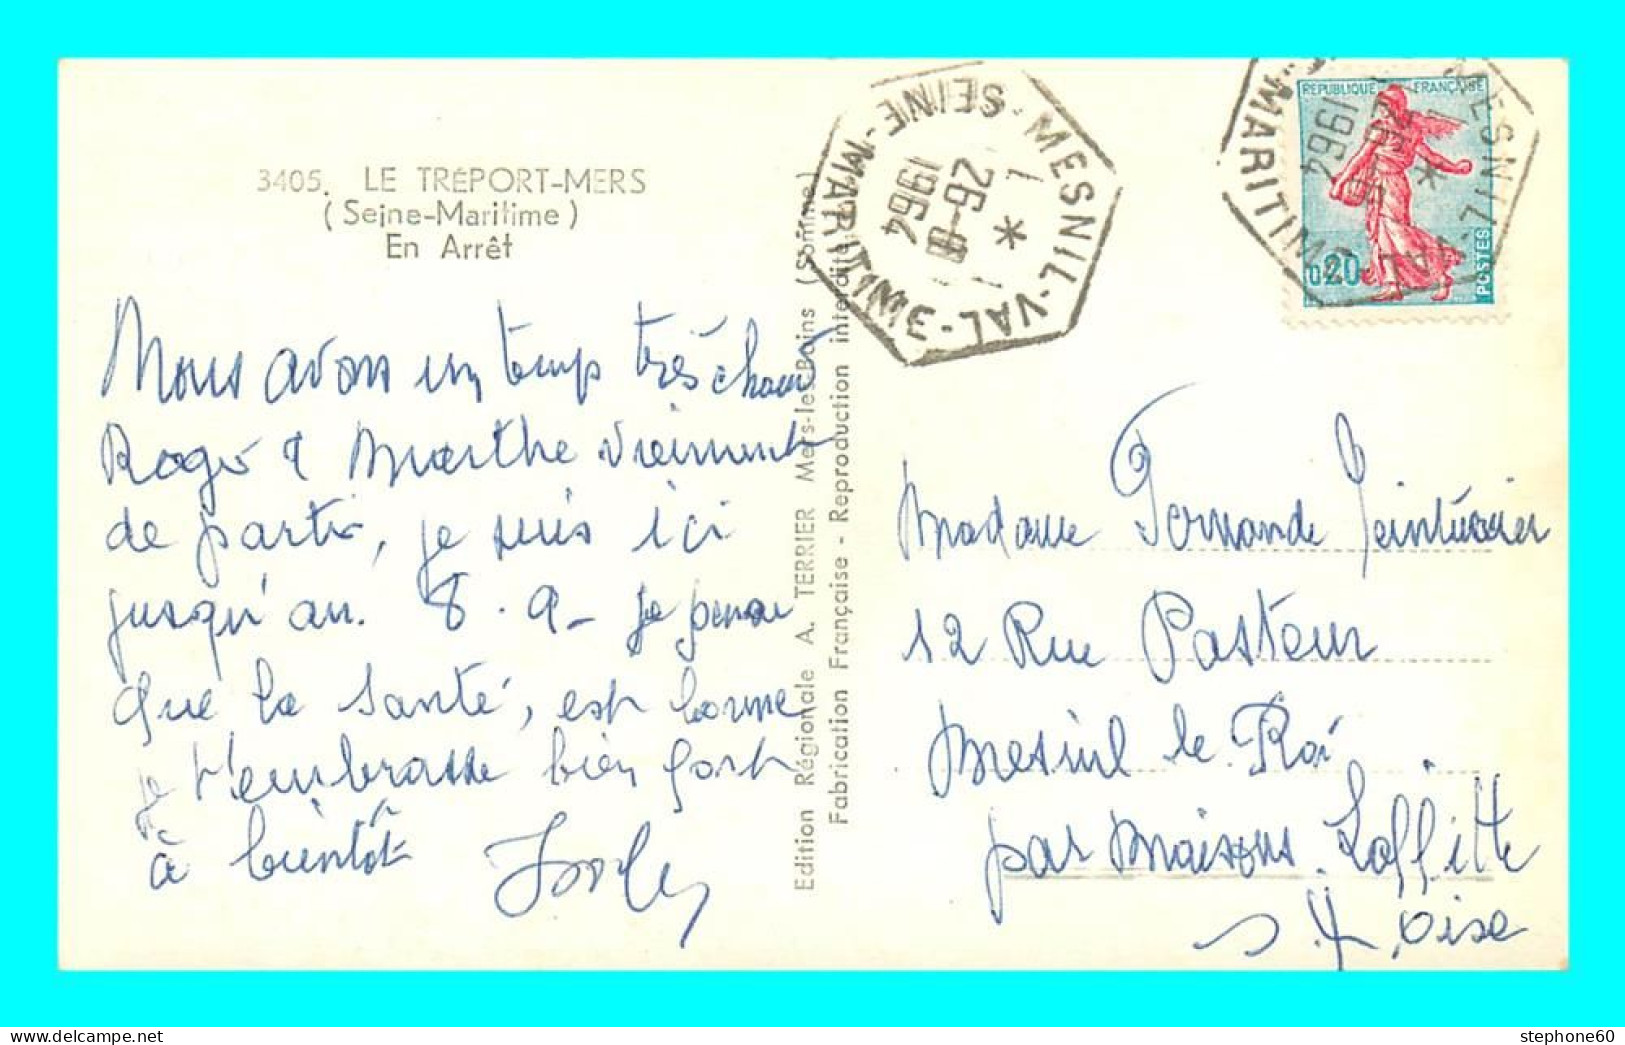 3405. LE TRÉPORT-MERS
(Seine-Maritime)
En Arrêt
Nous avons un temps très chaud
Roger & Marthe viennent
de partir, je suis ici
jusqu'au 8.9- je pense
que la santé, est bonne
je t'embrasse bien fort
à bientôt
Edition Régionale A. TERRIER Mers-les-Bains (Somme)
Fabrication Française - Reproduction interdite
MESNIL-VAL-SEINE-MARITIME
26-8
1964
REPUBLIQUE FRANÇAISE
0,20
POSTES
MESNIL-VAL
MARITIME
26-8
1964
Madame Fernande Teinturier
12 Rue Pasteur
Mesnil le Roi
par Maisons Laffitte
S. & Oise
stephone60